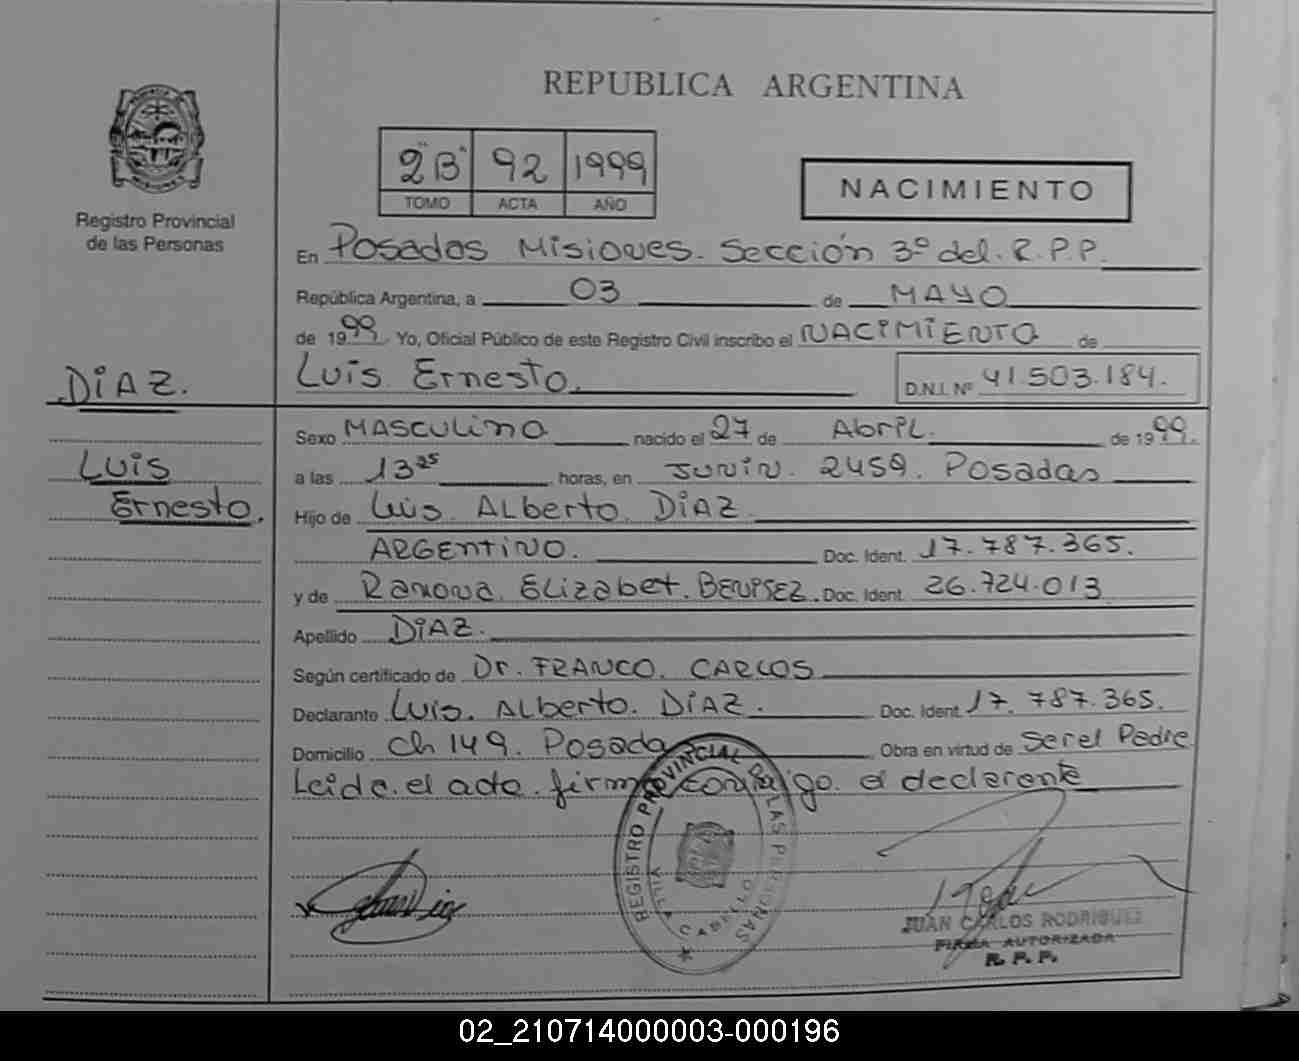 REPUBLICA ARGENTINA
2"B" 92 1999
TOMO ACTA AÑO
NACIMIENTO
Registro Provincial
de las Personas
En Posadas Misiones. Sección 3º del. R.P.P.
República Argentina, a 03 de MAYO
de 1999. Yo, Oficial Público de este Registro Civil inscribo el NACIMIENTO de
Luis Ernesto. D.N.I. Nº 41.503.184.
DIAZ.
Luis
Ernesto.
Sexo MASCulino nacido el 27 de AbriL. de 1999.
a las 13 25 horas, en JUNIN. 2459. Posadas
Hijo de Luis. ALberto. DIAZ
ARGENTINO. Doc. Ident. 17.787.365.
y de Ramona. ELizabet. Doc. Ident. 26.724.013
Apellido DIAZ.
Según certificado de Dr. FRANCO. CARLOS
Declarante Luis. ALberto. DIAZ. Doc. Ident. 17.787.365.
Domicilio ch 149. Posada Obra en virtud de Ser el Padre
Leida el acta firma conmigo el declarante
REGISTRO PROVINCIAL DE LAS PERSONAS
VILLA CABELLO
JUAN CARLOS RODRIGUEZ
FIRMA AUTORIZADA
R.P.P.
02_210714000003-000196